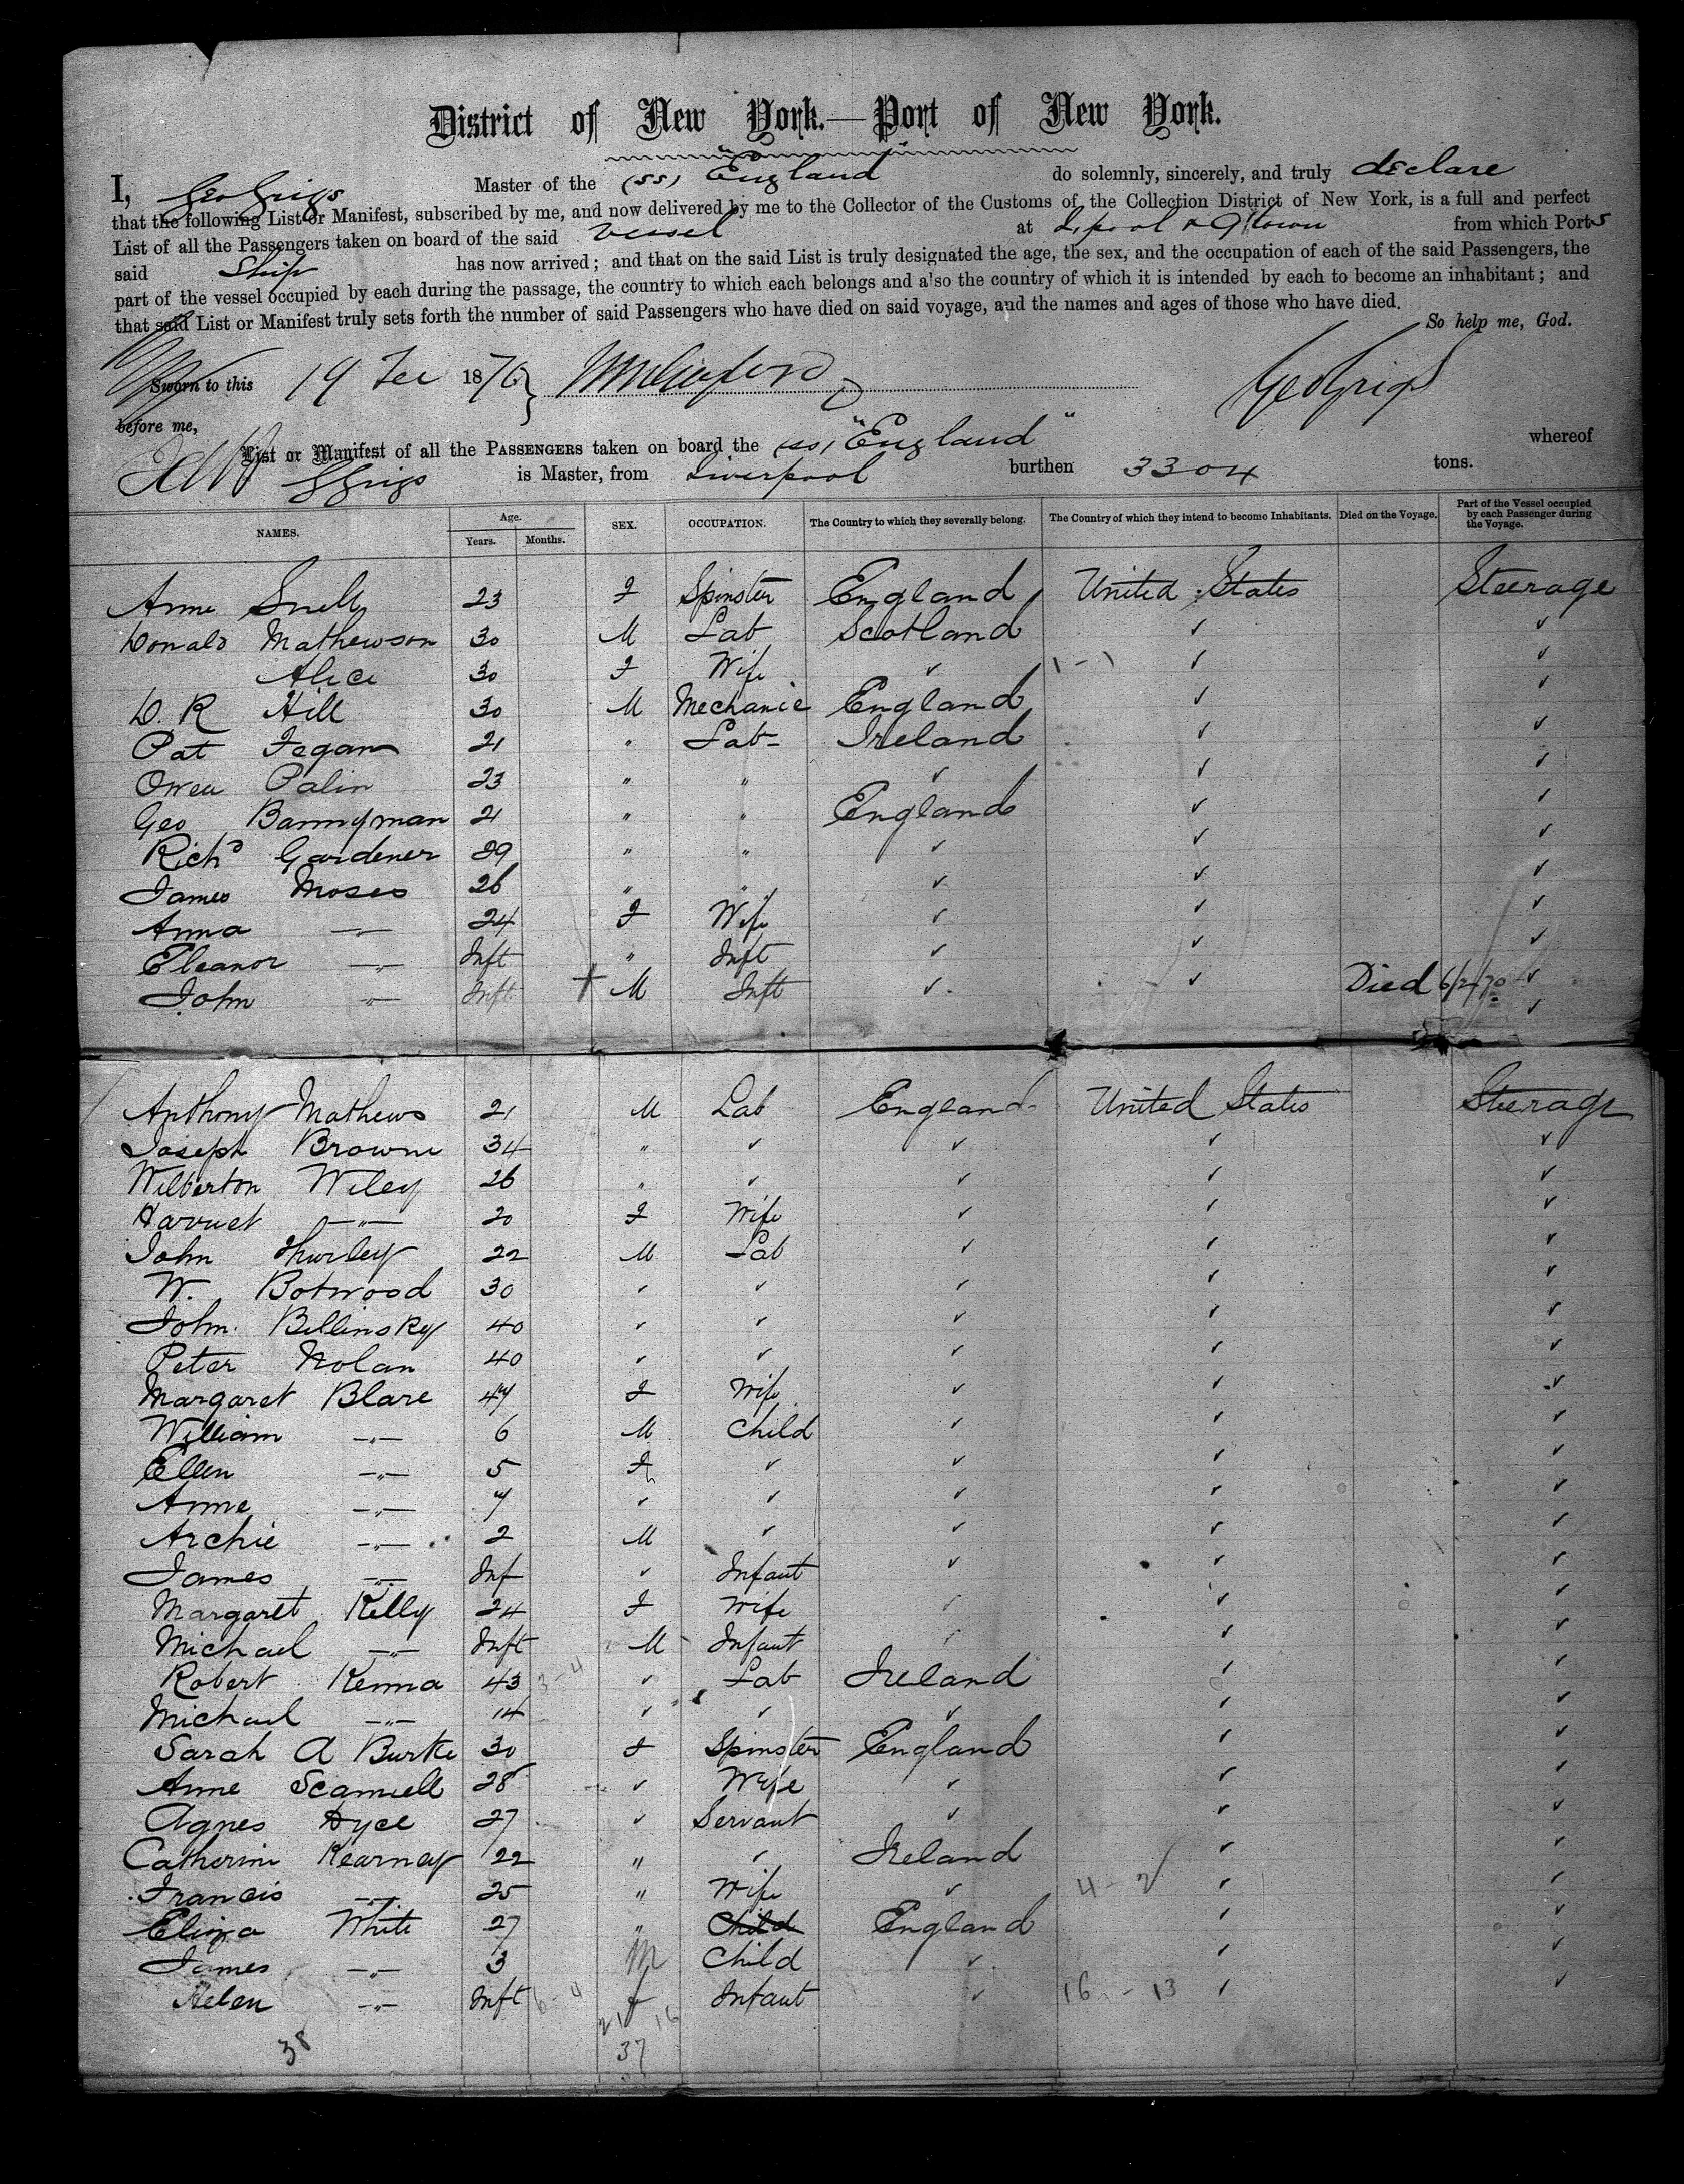 District of New York.—Port of New York.
I, Geo Grigs Master of the (ss) "England" do solemnly, sincerely, and truly declare
that the following List or Manifest, subscribed by me, and now delivered by me to the Collector of the Customs of the Collection District of New York, is a full and perfect
List of all the Passengers taken on board of the said Vessel at L'pool & Q'town from which Ports
said Ship has now arrived; and that on the said List is truly designated the age, the sex, and the occupation of each of the said Passengers, the
part of the vessel occupied by each during the passage, the country to which each belongs and also the country of which it is intended by each to become an inhabitant; and
that said List or Manifest truly sets forth the number of said Passengers who have died on said voyage, and the names and ages of those who have died.
So help me, God.
Sworn to this 19 1870 Geo Grigs
before me,
List or Manifest of all the PASSENGERS taken on board the (ss) "England" whereof
G Grigs is Master, from Liverpool burthen 3304 tons.
NAMES. Age. Years. Months. SEX. OCCUPATION. The Country to which they severally belong. The Country of which they intend to become Inhabitants. Died on the Voyage. Part of the Vessel occupied by each Passenger during the Voyage.
Anne Snell 23 F Spinster England United States Steerage
Donald Mathewson 30 M Lab Scotland ✓ ✓
Alice 30 F Wife ✓ 1-1 ✓ ✓
D. R Hill 30 M Mechanic England ✓ ✓
Pat Fegan 21 " Lab- Ireland ✓ ✓
Owen Palin 23 " " ✓ ✓ ✓
Geo Bannyman 21 " " England ✓ ✓
Richd Gardener 29 " " ✓ ✓ ✓
James Moses 26 " " ✓ ✓ ✓
Anna —"— 24 F Wife ✓ ✓ ✓
Eleanor —"— Inft " Inft ✓ ✓ ✓
John —"— Inft + M Inft ✓ ✓ Died 6/2/70 ✓
Anthony Mathews 21 M Lab England United States Steerage
Joseph Browne 34 " ✓ ✓ ✓ ✓
Wilberton Wiley 26 " ✓ ✓ ✓ ✓
Harriet —"— 20 F Wife ✓ ✓ ✓
John Thurley 22 M Lab ✓ ✓ ✓
W. Botwood 30 ✓ ✓ ✓ ✓ ✓
John Billinsky 40 ✓ ✓ ✓ ✓ ✓
Peter Nolan 40 ✓ ✓ ✓ ✓ ✓
Margaret Blare 47 F Wife ✓ ✓ ✓
William —"— 6 M Child ✓ ✓ ✓
Ellen —"— 5 F ✓ ✓ ✓ ✓
Anne —"— 4 ✓ ✓ ✓ ✓ ✓
Archie —"— 2 M ✓ ✓ ✓ ✓
James —"— Inf ✓ Infant ✓ ✓ ✓
Margaret Kelly 24 F Wife ✓ ✓ ✓
Michael —"— Inft M Infant ✓ ✓ ✓
Robert Kenna 43 3-4 ✓ Lab Ireland ✓ ✓
Michael —"— 14 ✓ ✓ ✓ ✓ ✓
Sarah A Burke 30 F Spinster England ✓ ✓
Anne Scannell 28 ✓ Wife ✓ ✓ ✓
Agnes Hyce 27 ✓ Servant ✓ ✓ ✓
Catherine Kearney 22 " ✓ Ireland ✓ ✓
Francis —"— 25 " Wife ✓ 4-2 ✓ ✓
Eliza White 27 " Child England ✓ ✓
James —"— 3 M Child ✓ ✓ ✓
Helen —"— Inft 6-4 F Infant ✓ 16-13 ✓ ✓
21 16
38 37